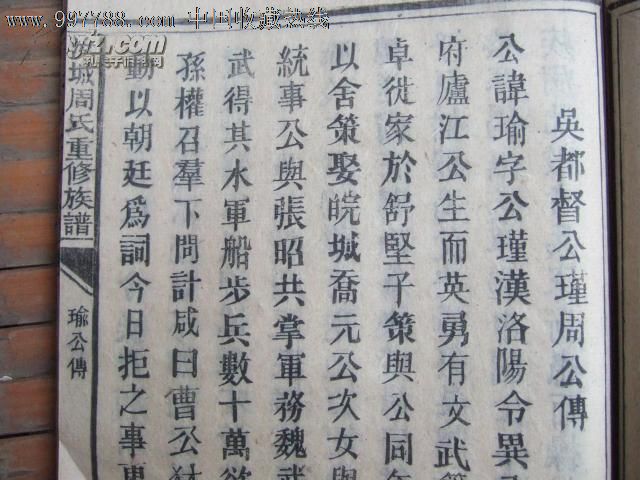 www.997788.com 中国收藏热线
吳都督公瑾周公傳
公諱瑜字公瑾漢洛陽令異
府廬江公生而英勇有文武
卓徙家於舒堅子策與公同
以舍策娶皖城喬元公次女與
統事公與張昭共掌軍務魏武
武得其水軍船步兵數十萬欲
孫權召羣下問計咸曰曹公豺
動以朝廷爲詞今日拒之事更
城周氏重修族譜
瑜公傳